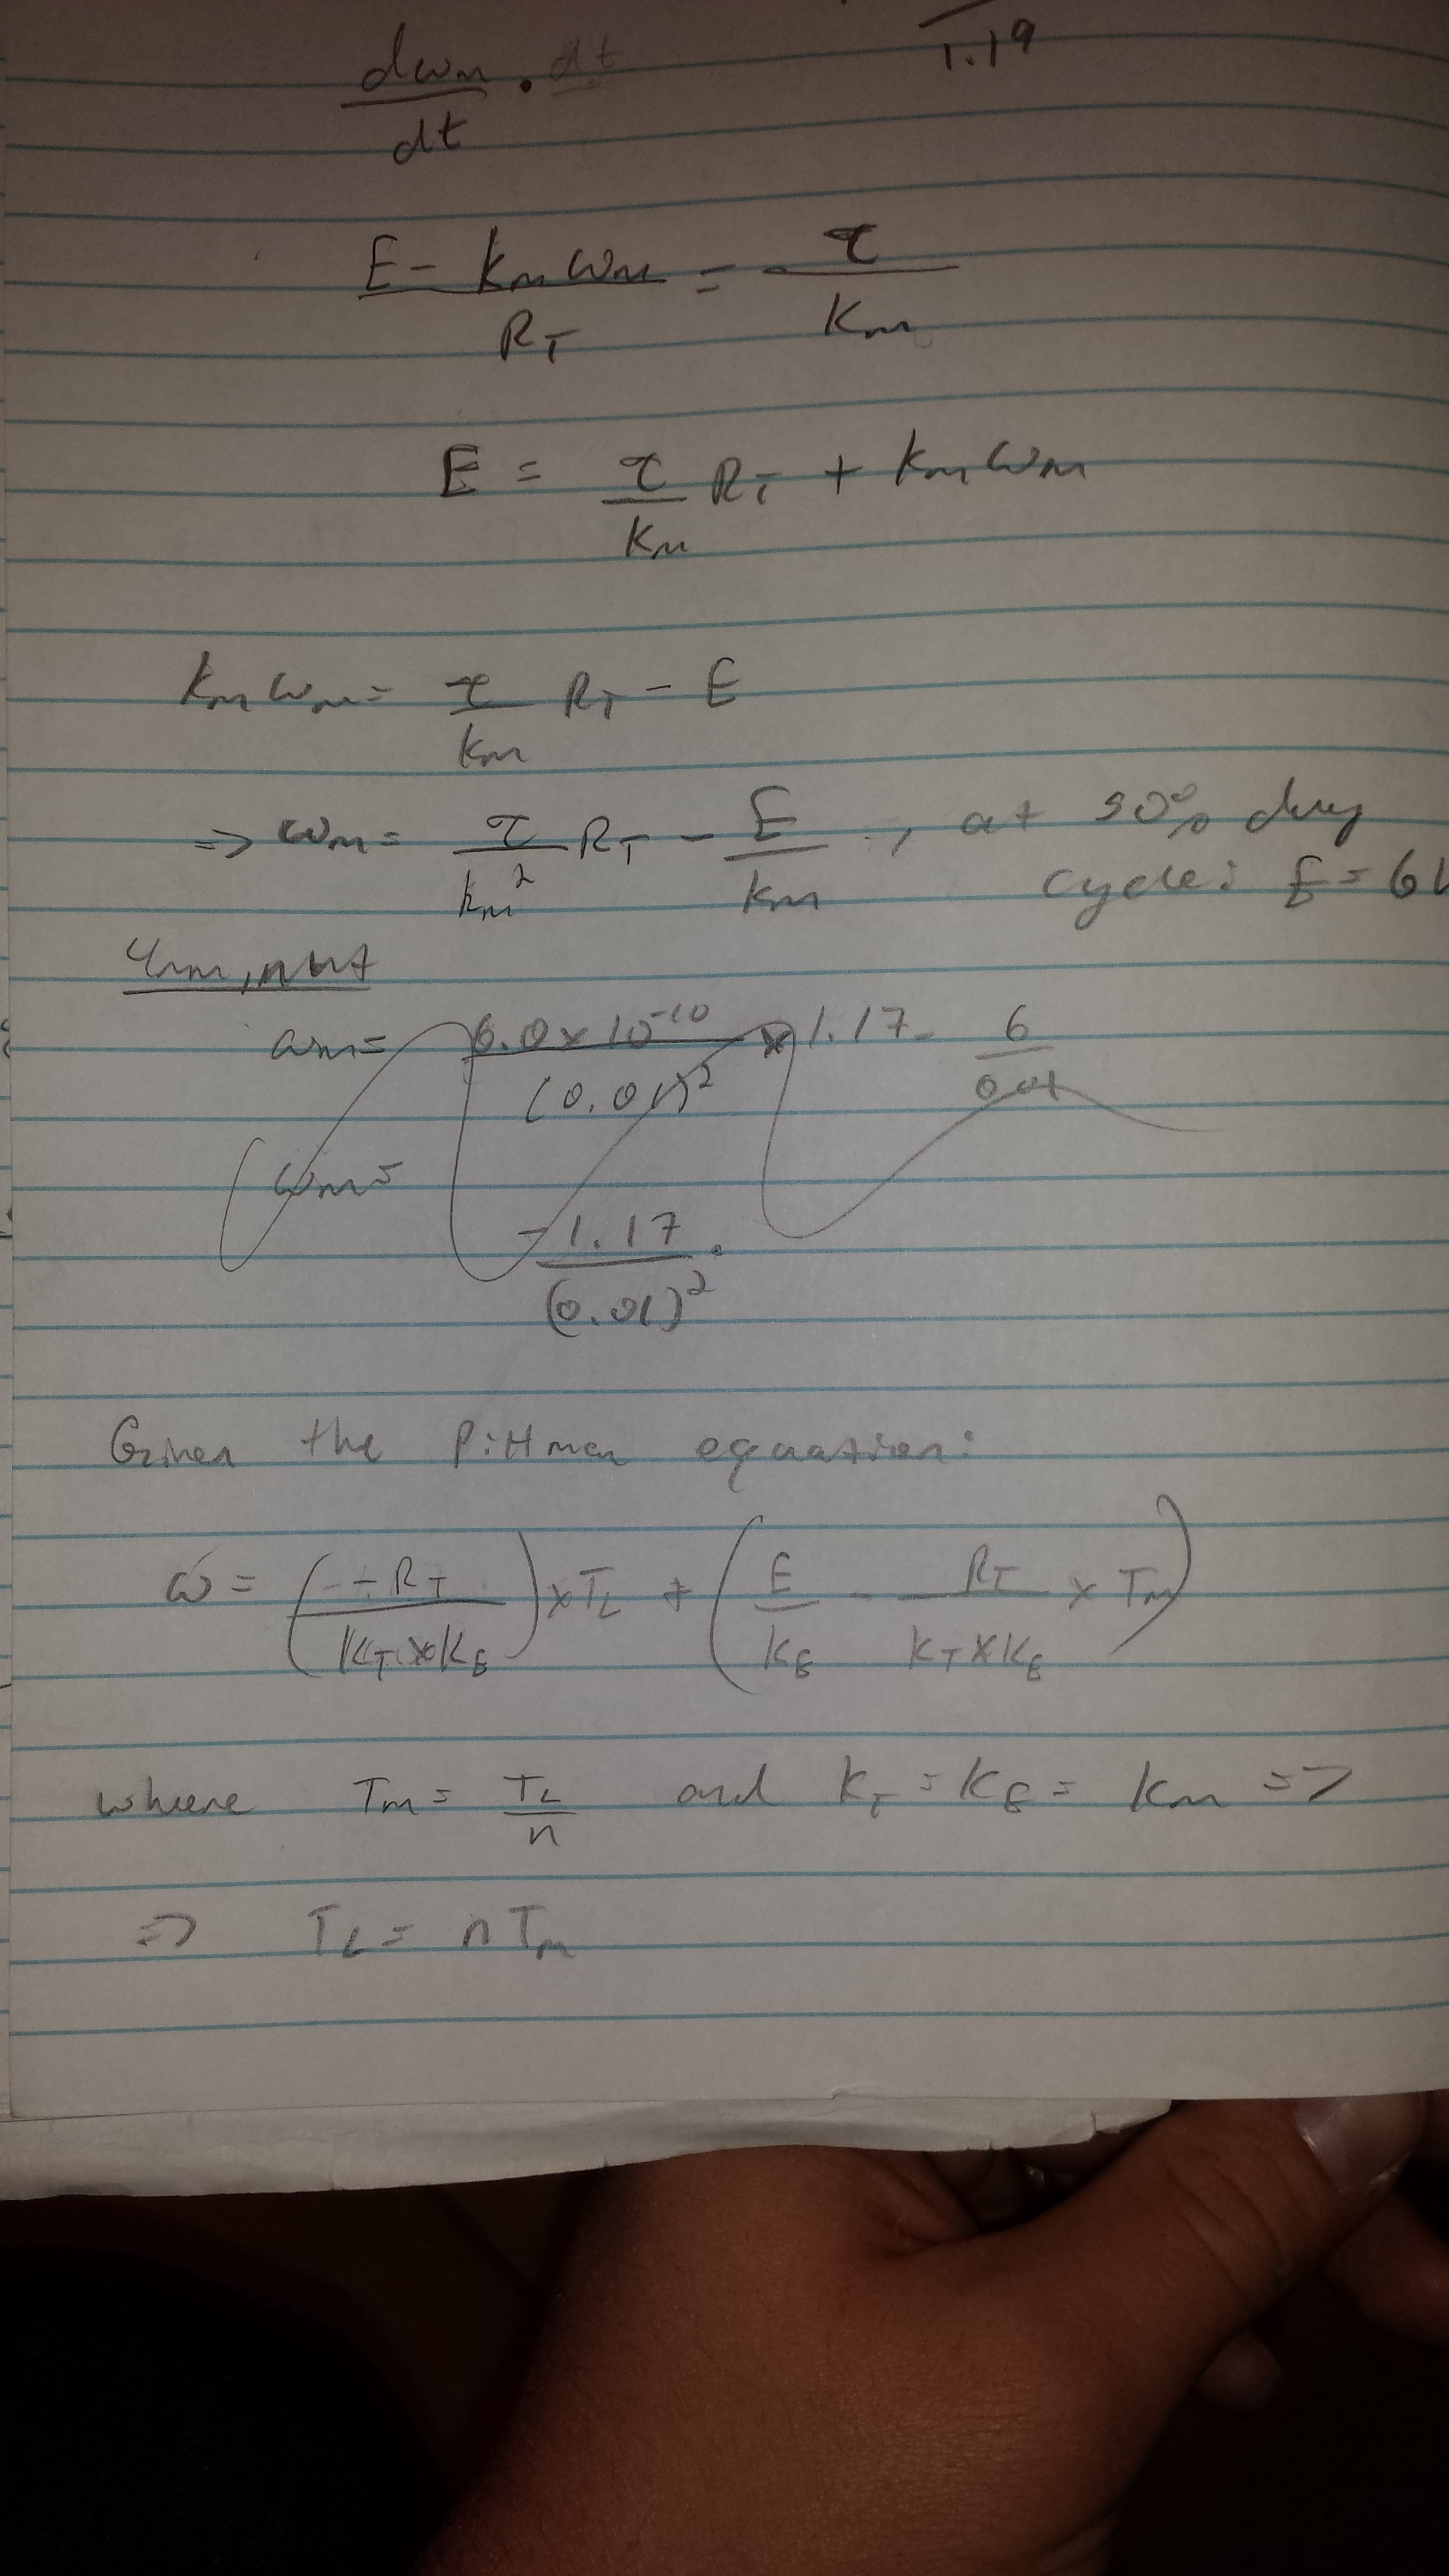 1.19
dωm/dt · dt
(E - kmωm)/RT = τ/Km
E = τ/Km RT + kmωm
kmωm = τ/km RT - E
=> ωm = τ/km² RT - E/km, at 50% duty
cycle: E = 6V
ωm = 6.0 x 10^-10/(0.01)² x 1.17 - 6/0.01
ωm =
-1.17/(0.01)² ·
Given the Pittman equation:
ω = (-RT/(KT x KE)) x TL + (E/KE - RT/(KT x KE) x Tm)
where Tm = TL/n and KT = KE = Km =>
=> TL = nTm